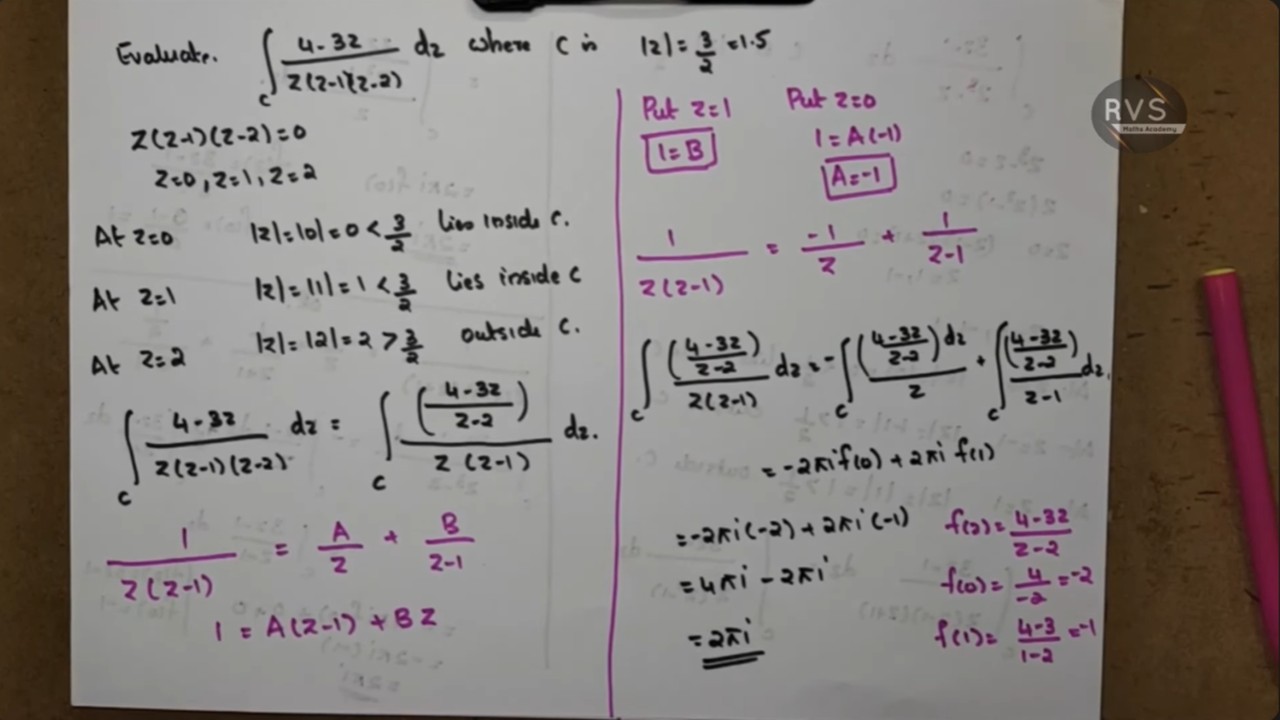 Evaluate. ∫_C (4-3z)/(z(z-1)(z-2)) dz where C is |z| = 3/2 = 1.5
z(z-1)(z-2) = 0
z=0, z=1, z=2
At z=0 |z|=|0|=0 < 3/2 lies inside C.
At z=1 |z|=|1|=1 < 3/2 lies inside C
At z=2 |z|=|2|=2 > 3/2 outside C.
∫_C (4-3z)/(z(z-1)(z-2)) dz = ∫_C ((4-3z)/(z-2))/(z(z-1)) dz.
1/(z(z-1)) = A/z + B/(z-1)
1 = A(z-1) + Bz
Put z=1 Put z=0
1=B 1=A(-1)
A=-1
1/(z(z-1)) = -1/z + 1/(z-1)
∫_C ((4-3z)/(z-2))/(z(z-1)) dz = -∫_C ((4-3z)/(z-2)) dz/z + ∫_C ((4-3z)/(z-2))/(z-1) dz.
= -2πi f(0) + 2πi f(1)
= -2πi(-2) + 2πi(-1) f(z) = (4-3z)/(z-2)
= 4πi - 2πi f(0) = 4/-2 = -2
= 2πi f(1) = (4-3)/(1-2) = -1
RVS
Maths Academy